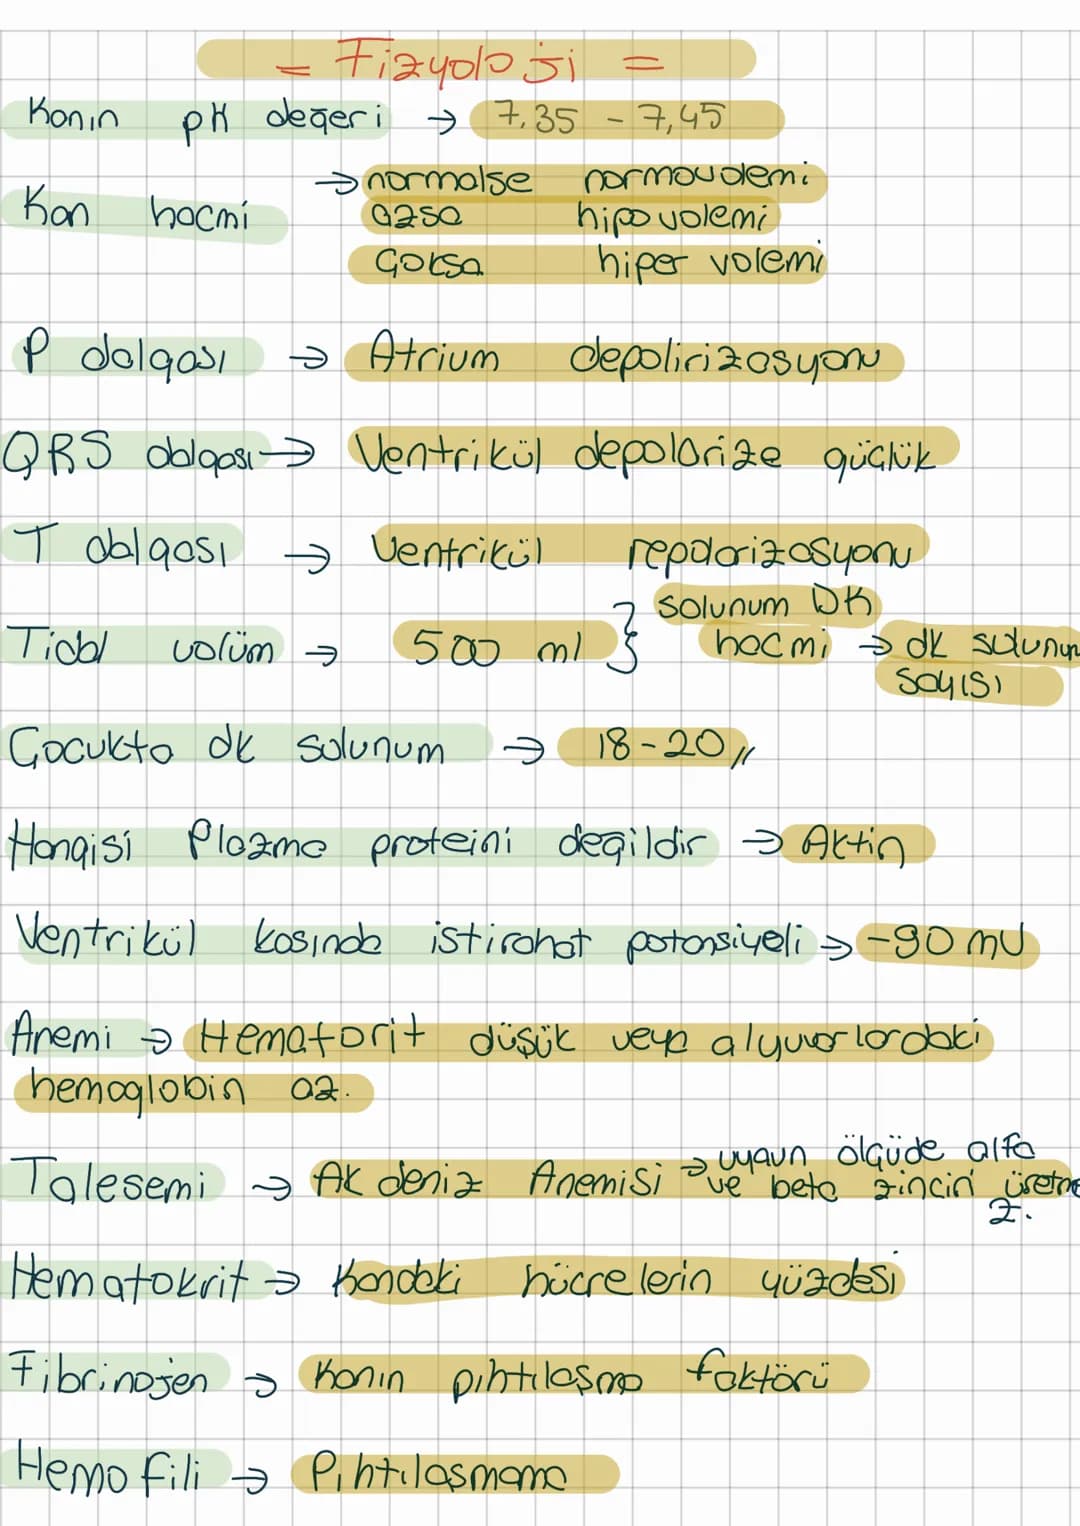 = Fizyoloji =
Kanın pH değeri → 7.35 - 7,45
Kan hacmi → normalse normovolemi
azsa hipovolemi
Çoksa hiper volemi
P dalgası → Atrium depolirizasyonu
QRS dalgası → Ventrikül depolarize güçlük
T dalgası → Ventrikül repolarizasyonu
Tidal volüm → 500 ml } solunum DK hacmi → dk solunun sayısı
Çocukta dk solunum → 18-20 //
Hangisi Plazma proteini değildir → Aktin
Ventrikül kasında istirahat potansiyeli → -90 mV
Anemi → Hematorit düşük veya alyuvarlardaki
hemoglobin az.
Talesemi → Akdeniz Anemisi → uyaun ölçüde alfa ve beta zinciri üretme z.
Hematokrit → Kandaki hücrelerin yüzdesi
Fibrinojen → Kanın pıhtılaşma faktörü
Hemofili → Pıhtılaşmama